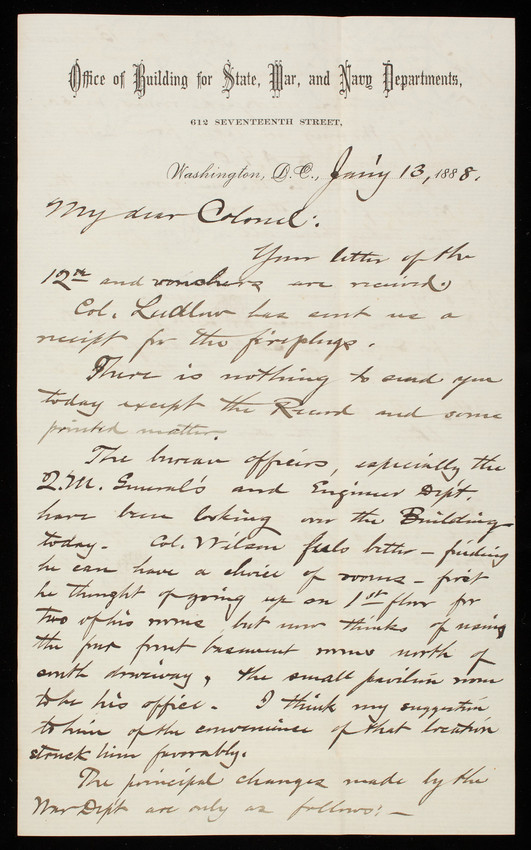 Office of Building for State, War, and Navy Departments,
612 SEVENTEENTH STREET,
Washington, D.C., Jan'y 13, 1888.
My dear Colonel:
Your letter of the
12th and vouchers are received.
Col. Ludlow has sent us a
receipt for the fireplugs.
There is nothing to send you
today except the Record and some
printed matter.
The bureau officers, especially the
Q.M. General's and Engineer Dept.
have been looking over the Building
today. Col. Wilson feels better – finding
he can have a choice of rooms – first
he thought of going up on 1st floor for
two of his rooms but now thinks of using
the four front basement rooms north of
south driveway, the small pavilion room
to be his office. I think my suggestion
to him of the convenience of that location
struck him favorably.
The principal changes made by the
War Dept are only as follows: –